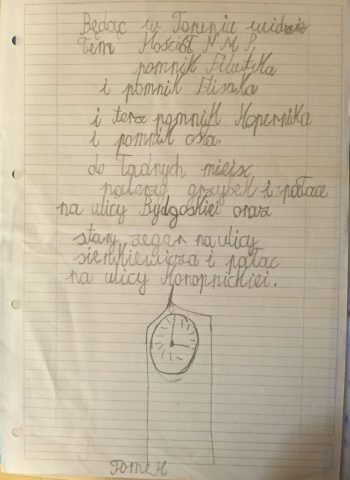 Będąc w Toruniu widzia
łem Kościół N M P,
pomnik Filutka
i pomnik Fliska
i też pomnik Kopernika
i pomnik osła.
do ładnych miejsc
należy grzybek i pałace
na ulicy Bydgoskiei oraz
stary zegar na ulicy
sienkiewicza i pałac
na ulicy Konopnickiei.
Tomek